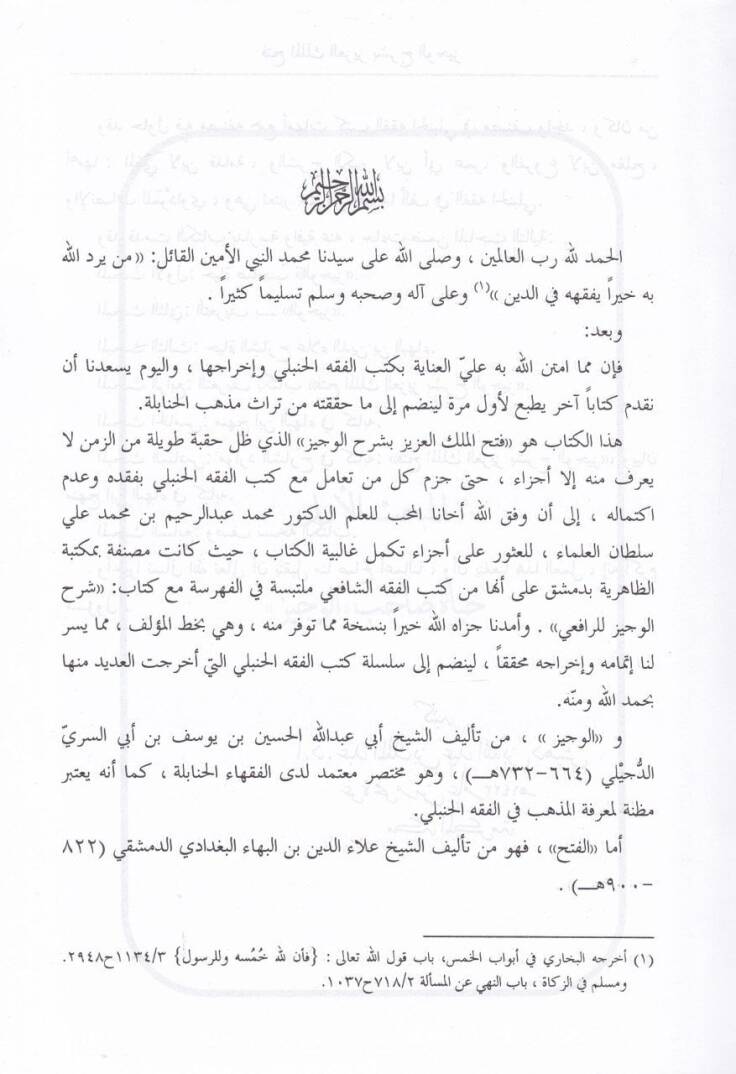 بسم الله الرحمن الرحيم
الحمد لله رب العالمين ، وصلى الله على سيدنا محمد النبي الأمين القائل: «من يرد الله
به خيراً يفقهه في الدين »(١) وعلى آله وصحبه وسلم تسليماً كثيراً .
وبعد:
فإن مما امتن الله به عليّ العناية بكتب الفقه الحنبلي وإخراجها ، واليوم يسعدنا أن
نقدم كتاباً آخر يطبع لأول مرة لينضم إلى ما حققته من تراث مذهب الحنابلة.
هذا الكتاب هو «فتح الملك العزيز بشرح الوجيز» الذي ظل حقبة طويلة من الزمن لا
يعرف منه إلا أجزاء ، حتى جزم كل من تعامل مع كتب الفقه الحنبلي بفقده وعدم
اكتماله ، إلى أن وفق الله أخانا المحب للعلم الدكتور محمد عبدالرحيم بن محمد علي
سلطان العلماء ، للعثور على أجزاء تكمل غالبية الكتاب ، حيث كانت مصنفة بمكتبة
الظاهرية بدمشق على أنها من كتب الفقه الشافعي ملتبسة في الفهرسة مع كتاب: «شرح
الوجيز للرافعي» . وأمدنا جزاه الله خيراً بنسخة مما توفر منه ، وهي بخط المؤلف ، مما يسر
لنا إتمامه وإخراجه محققاً ، لينضم إلى سلسلة كتب الفقه الحنبلي التي أخرجت العديد منها
بحمد الله ومنّه.
و «الوجيز » ، من تأليف الشيخ أبي عبدالله الحسين بن يوسف بن أبي السريّ
الدُّجيْلي (٦٦٤-٧٣٢هـ) ، وهو مختصر معتمد لدى الفقهاء الحنابلة ، كما أنه يعتبر
مظنة لمعرفة المذهب في الفقه الحنبلي.
أما «الفتح» ، فهو من تأليف الشيخ علاء الدين بن البهاء البغدادي الدمشقي (٨٢٢
-٩٠٠هـ) .
(١) أخرجه البخاري في أبواب الخمس، باب قول الله تعالى : {فأن لله خُمُسه وللرسول} ١١٣٤/٣ح٢٩٤٨.
ومسلم في الزكاة ، باب النهي عن المسألة ٧١٨/٢ح١٠٣٧.